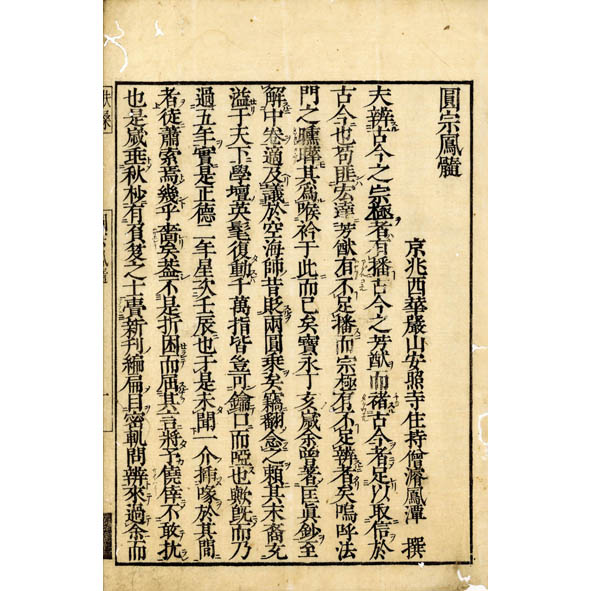 圓宗鳳髓
京兆西華嚴山安照寺住持僧濬鳳潭 撰
夫辨古今之宗極者有播古今之芳猷而禇古今者足以取信於
古今也苟匪宏達芳猷有不足播而宗極有不足辨者矣嗚呼法
門之曛曄其爲喉衿于此而已矣寶永丁亥歲余曾著匡眞鈔至
解中卷適及議於空海師昔貶兩圓乘矣竊翻念之賴其末裔充
溢于天下學壇英髦復動千萬指皆豈可鑰口而啞也歟旣而乃
過五年實是正德二年星次壬辰也于是未聞一介揷喙於其間
者從蕭索焉幾乎裔矣蓋不是折困而屈其言將予僥倖不敢抗
也是歲乖秋杪有負笈之士賷新刊編扁目密軌問辨來過余而